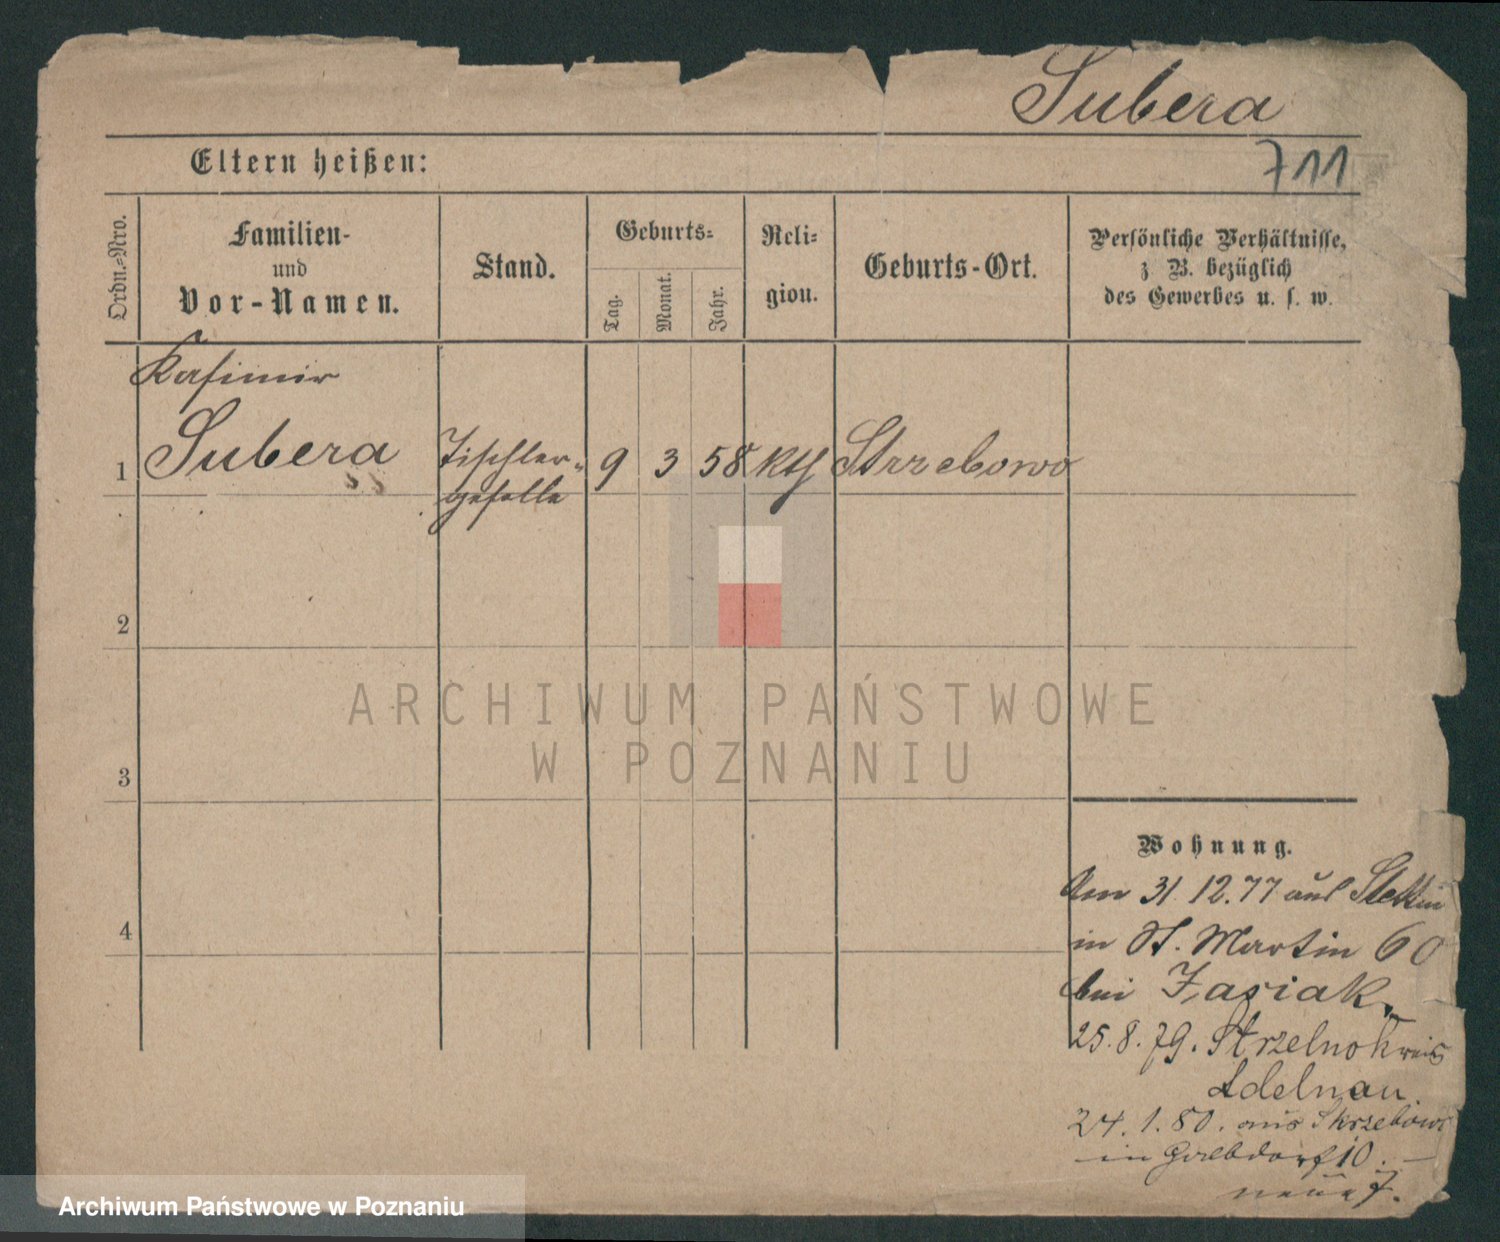 Subera
711
Eltern heißen:
Ordn.-Nro.
Familien-
und
Vor-Namen.
Stand.
Geburts-
Tag.
Monat.
Jahr.
Reli-
gion.
Geburts-Ort.
Persönliche Verhältnisse,
z B. bezüglich
des Gewerbes u. s. w.
Kasimir
1 Subera Tischler- 9 3 58 kth Strzebowo
geselle
2
3
4
ARCHIWUM PAŃSTWOWE
W POZNANIU
Wohnung.
Am 31 12.77 aus Stettin
in St. Martin 60
bei Jasiak,
25.8.79. Strzelno Kreis
Adelnau.
24.1.80. aus Skrzebowo
in 10.
neue 7.
Archiwum Państwowe w Poznaniu